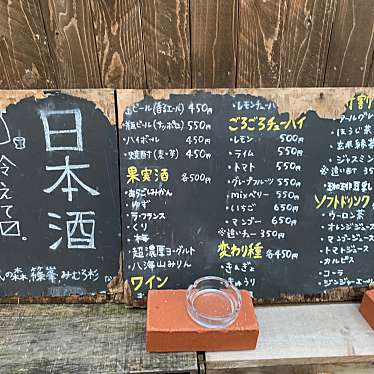 日本酒
冷えてる。
の森、篠峯、みむろ杉
生ビール(香るエール) 450円
瓶ビール(サッポロ) 550円
ハイボール 450円
焼酎(麦・芋) 450円
果実酒 各500円
・あらごしみかん
・ゆず
・ラ・フランス
・くり
・梅
・超濃厚ヨーグルト
・八海山みりん
ワイン
・レモンチューハイ 450円
ごろごろチューハイ
・レモン 500円
・ライム 550円
・トマト 550円
・グレープフルーツ 550円
・mixベリー 550円
・いちご 550円
・マンゴー 550円
※追いチュー 350円
変わり種 各450円
・きんぎょ
・きゅうり
割り
・ウーロン
・ほうじ茶
・玄米緑茶
・ジャスミン
ソフトドリンク
・ウーロン茶
・オレンジジュース
・マンゴージュース
・トマトジュース
・カルピス
・コーラ
・ジンジャーエール